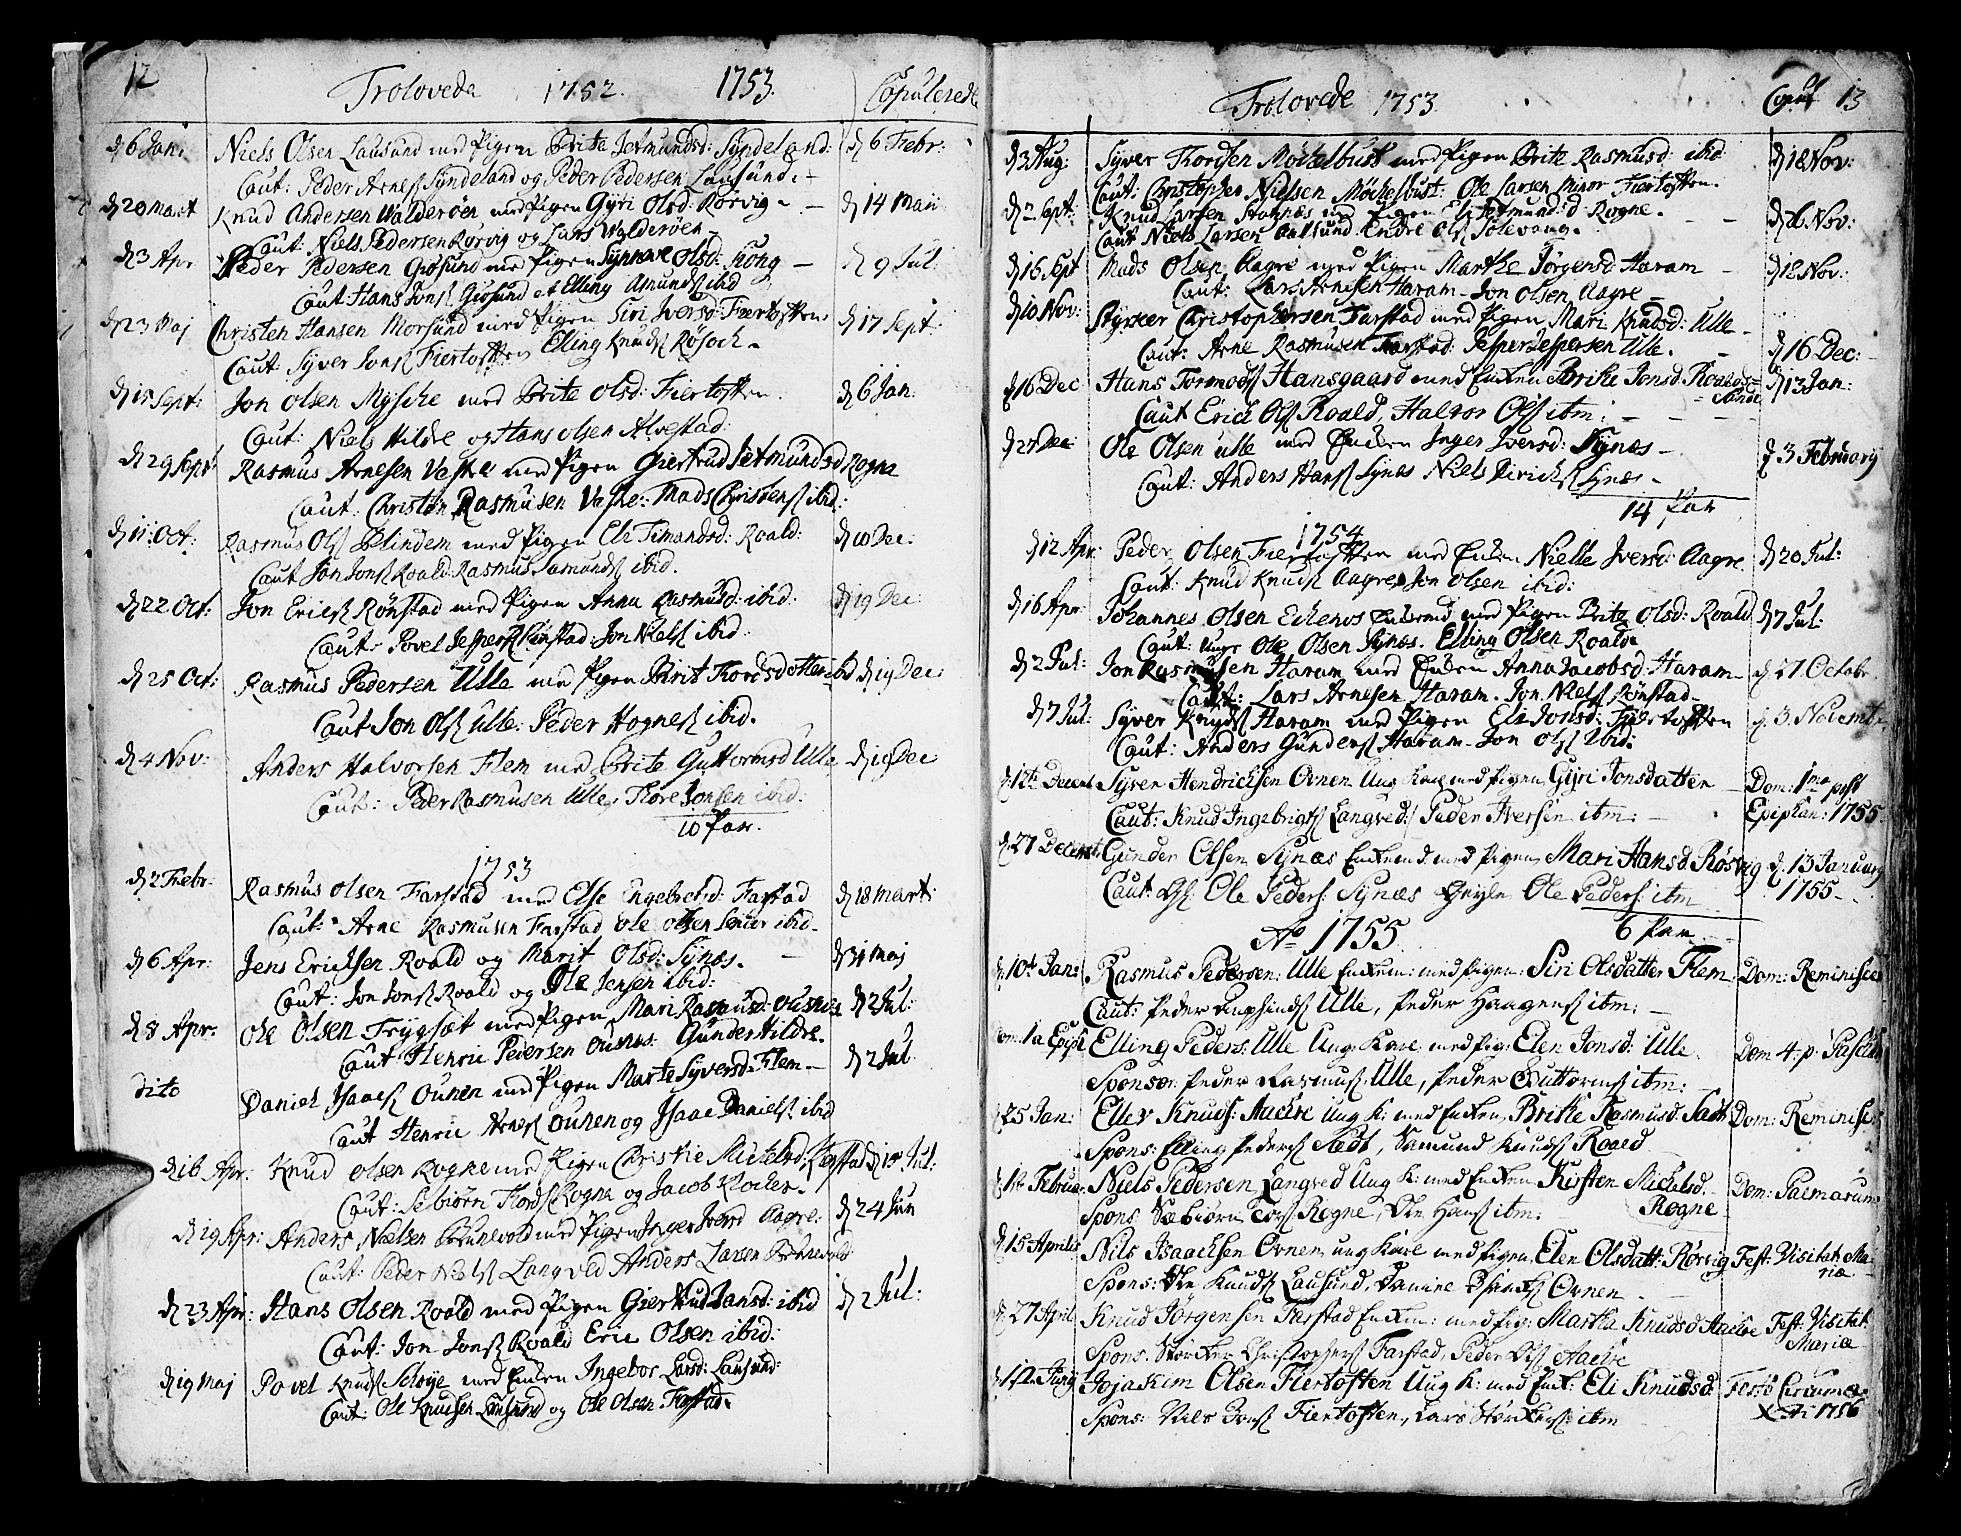 12 Trolovede 1752. 1753. Copulerede
d 6 Jan: Niels Olsen Lausund med Pigen Brite Jetmundsd: Syndeland: d 6 Febr:
Caut: Peder Arnes Syndeland og Peder Pedersen Lausund.
d 20 Mart Knud Andersen Walderöen med Pigen Gyri Olsd: Rörvig. d 14 Maii
Caut: Niels Pedersen Rörvig og Lars Walderöen
d 3 Apr Peder Pedersen Giösund med Pigen Synneve Olsd: Kong d 9 Jul:
Caut Hans Jons Giösund et Elling Amunds ibid
d 23 Maj Christen Hansen Morsund med Pigen Siri Iversd: Fiertoften d 17 Sept:
Caut: Syver Jons Fiertoften Elling Knuds Rösoch.
d 18 Sept: Jon Olsen Mysche med Brite Olsd: Fiertoften. d 6 Jan:
Caut: Niels Hildre og Hans Olsen Alvestad:
d 29 Sept: Rasmus Arnesen Vestre med Pigen Giertrud Jetmundsd Rogne
Caut: Christen Rasmusen Vestre: Mads Christens ibid:
d 11: Oct: Rasmus Ols Blindem med Pigen Ele Simandsd: Roald: d 10 Dec:
Caut Jon Jons Roald: Rasmus Samunds ibid.
d 22 Oct: Jon Erics Rönstad med Pigen Anna Rasmusd: ibid. d 19 Dec:
Caut: Povel Jespers Rönstad Jon Niels ibid.
d 25 Oct: Rasmus Pedersen Ulle med Pigen Brit Thordsdotter ibd d 19 Dec:
Caut Jon Ols Ulle: Peder Hognes ibid.
d 4 Nov: Anders Halvorsen Flem med Brite Guttormsd Ulle d 19 Dec
Caut: Peder Rasmusen Ulle, Thore Jonsen ibid:
10 Par.
1753
d 2 Febr: Rasmus Olsen Farstad med Else Engebretsd: Farstad d 18 Mart:
Caut: Arne Rasmusen Farstad Ole Olsen Senior ibid.
d 6 Apr: Jens Ericksen Roald og Marit Olsd: Synæs. d 31 Maj
Caut: Jon Jons Roald og Ole Jensen ibid:
d 8 Apr: Ole Olsen Trygsæt med Pigen Mari Rasmusd: Oursnes d 2 Jul:
Caut Henric Pedersen Oursnes. Gunder Hildre.
dito Daniel Isaacs Ournen med Pigen Marte Syversd: Flem. d 2 Jul
Caut Henric Arnes Ournen og Isaac Daniels ibid
d 16 Apr: Knud Olsen Rogne med Pigen Christie Michelsd: d 15 Jul:
Caut: Sebiörn Thords Rogne og Jacob
d 19 Apr: Anders Nielsen Brunevold med Pigen Inger Iversd Aagre: d 24 Jun
Caut: Peder Niels Langved Anders Larsen Brunevold
d 23 Apr: Hans Olsen Roald med Pigen Giertrud Jansd: ibid d 2 Jul:
Caut: Jon Jons Roald Eric Olsen ibid:
d 19 Maj Povel Knuds med Encken Ingebor Larsd: Lausund:
Caut: Ole Knudsen Lausund og Ole Olsen Farstad.
Trolovede 1753. Coput 13
d 3 Aug: Syver Thordsen Möckelbust med Pigen Brite Rasmusd: ibid d 18 Nov:
Caut: Christopher Nielsen Möckelbust: Ole Larsen Minor Fiertoften.
d 2 Sept: Knud Larsen Stoknæs med Pigen Eli Jetmunds:d: Rogne. d 26 Nov:
Caut Niels Larsen Aalsund Endre Ols
d 16 Sept Mads Olsen Aagre med Pigen Marthe Jörgensd: Haram d 18 Nov:
Caut: Lars Arnesen Haram. Jon Olsen Aagre
d 10 Nov: Styrcker Christophersen Farstad med Pigen Mari Knudsd: Ulle d 16 Dec:
Caut: Arne Rasmusen Farstad: Jesper Jespersen Ulle.
d 16 Dec Hans Tormods Hansgaard med Encken Brithe Jonsd: Roaldsande d 13 Jan:
Caut Erich Ols Roald, Halvor Ols itm:
d 27 Dec: Ole Olsen Ulle med Encken Inger Iversd: Synæs d 3 February
Caut: Anders Hans Synæs Niels Diricks Synæs.
14 Par
1754
d 12 Apr: Peder Olsen Fiertoften med Encken Nielle Iversd: Aagre d 20 Jul:
Caut: Knud Knuds Aagre Jon Olsen ibid:
d 16 Apr Johannes Olsen Eckenes Enkemd med Pigen Brite Olsd: Roald d 7 Jul:
Caut: unge Ole Olsen Synæs. Elling Olsen Roald.
d 2 Jul: Jon Rasmusen Haram med Encken Anna Jacobsd: Haram d 27 Octobr.
Caut: Lars Arnesen Haram. Jon Niels Rönstad
d 7 Jul: Syver Knuds Haram med Pigen Eli Jonsd: Fiertoften d. 3. Novembr
Caut: Anders Gunders Haram. Jon Ols Ibid:
d 12te Decemb Syver Hendrichsen Ornen Ung Karl med Pigen Gyri Jonsdatter Dom: 1ma post
Caut: Knud Ingebrigts Langved: Peder Iversen itm: Epiphan: 1755
d. 27 Decemb. Gunder Olsen Synæs Enkemd. med Pigen Mari Hansd Rösvig d. 13 January
Caut. Gl: Ole Peders: Synæs Yngre Ole Peders: itm 1755
6 Par
Ao 1755
d 10de Jan: Rasmus Pedersen: Ulle Enkem: med Pigen: Siri Olsdatter Flem Dom: Reminisce
Caut: Peder Ulle, Peder Haagens itm:
Dom: 1a Epiph Elling Peders: Ulle Ung Karl med Pig: Elen Jonsd: Ulle Dom 4. p: Pascha
Sponsor: Peder Rasmus Ulle, Peder Guttorms itm:
25 Jan: Eller Knuds: Aachre Ung K: med Enken, Britte Rasmusd: Dom: Reminisce
Spons: Elling Peders Samund Knuds Roald
1te Februar Niels Pedersen Langved Ung K: med Enken Kirsten Michelsd. Rogne Dom: Palmarum
Spons: Sæbiörn Tors Rogne, Ole Hans itm:
d 15 Aprilis Nils Isaachsen Ornen ung Karl med Pigen Elen Olsdatt: Rörvig Fest: Visitat: Mariæ
Spons: Ole Knuds Lausund, Daniel Isaachs Ornen
d. 27 April Knud Jörgensen Farstad Enkem: med Pig: Martha Knudsd Aachre Fest: Visitat. Mariæ
Spons: Störcker Christophers Farstad, Peder Ols Aachre
d. 12 Junij Jojakim Olsen Fiertoften Ung K: med Enk: Eli Knudsd: Festo Circumc:
Spons: Nils Jons Fiertoften, Lars Störkers itm Xsti 1756